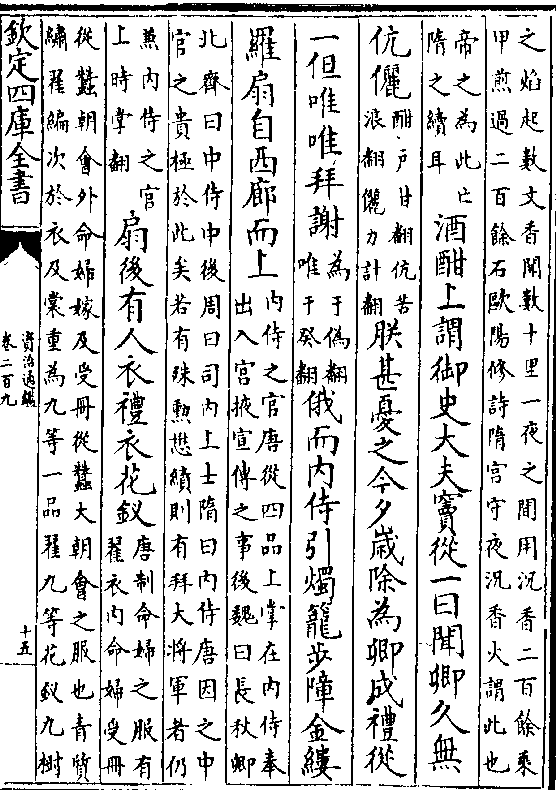 之焰起數丈香聞數十里一夜之間用沉香二百餘乘
甲煎過二百餘石歐陽修詩隋宫守夜沉香火謂此也
帝之為此亡
隋之續耳
酒酣上謂御史大夫竇從一曰聞卿久無
伉儷
酣户甘翻伉苦
浪翻儷力計翻
朕甚憂之今夕歲除為卿成禮從
一但唯唯拜謝
為于偽翻
唯于癸翻
俄而内侍引燭籠步障金縷
羅扇自西廊而上
内侍之官唐從四品上掌在内侍奉
出入宫掖宣傳之事後魏曰長秋卿
北齊曰中侍中後周曰司内上士隋曰内侍唐因之中
官之貴極於此矣若有殊勲懋績則有拜大將軍者仍
兼内侍之官
上時掌翻
扇後有人衣禮衣花釵
唐制命婦之服有
翟衣内命婦受冊
從蠶朝會外命婦嫁及受冊從蠶大朝會之服也青質
繡翟編次於衣及裳重為九等一品翟九等花釵九樹
欽定四庫全書
資治通鑑
卷二百九
十五